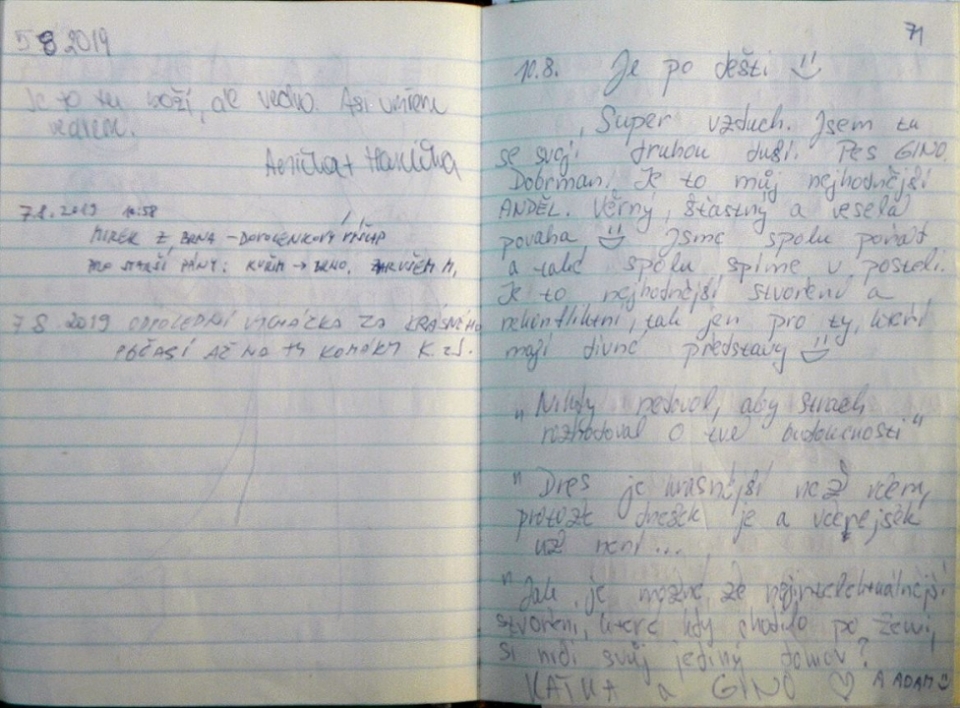 5 8 2019
Je to tu boží, ale vedro. Asi umřem
vedrem.
Anička + Hanička
7.8.2019 10:58
MIREK Z BRNA – DOPOLEDKOVÝ
PRO STARŠÍ PÁNY: KUŘIM → BRNO.
7 8 2019 ODPOLEDNÍ ZA KRÁSNÉHO
POČASÍ AŽ NA TY KOMÁRY
71
10.8. Je po dešti
Super vzduch. Jsem tu
se svojí druhou duší. Pes GINO
Dobrman. Je to můj nejhodnější
ANDĚL. Věrný, šťastný a veselá
povaha. Jsme spolu pořád
a také spolu spíme v posteli.
Je to nejhodnější stvoření a
nekonfliktní, tak jen pro ty, kteří
mají divné představy
"Nikdy nedovol, aby strach
rozhodoval o tvé budoucnosti"
"Dnes je krásnější než včera,
protože dnešek je a včerejšek
už není...
"Jak je možné že nejintelektuálnější
stvoření, které kdy chodilo po Zemi,
si ničí svůj jediný domov?
KATKA a GINO ♡ A ADAM